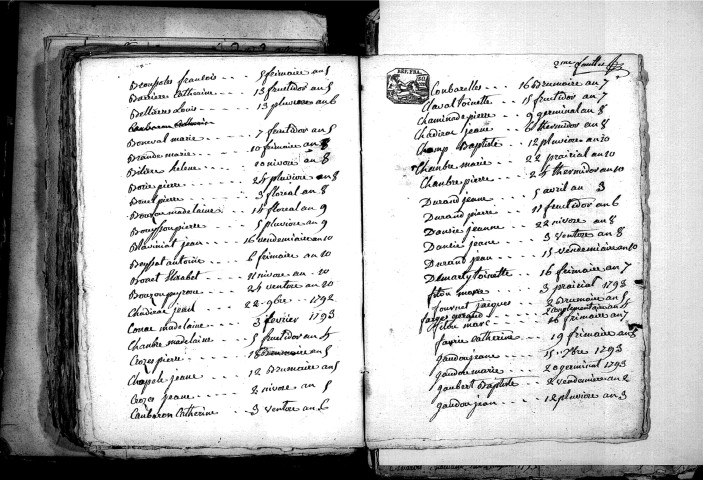 Beaupoles francois - - - 5 frimaire an 5
Barriere Catherine - - - 13 fructidor an 5
Bellieres Louis - - - 13 pluviore an 6
Bonval marie - - - 7 fructidor an 5
Brande marie - - - 10 frimaire an 8
Biliere helene - - - 20 nivore an 8
Borie pierre - - - 24 pluviore an 8
Bouet pierre - - - 3 floreal an 8
Bouron madelaine - - - 14 floreal an 9
Bouyssou pierre - - - 5 pluviore an 9
Blaviniat jean - - - 16 vendemiaire an 10
Beyssat antoine - - - 6 frimaire an 10
Bonet Elizabet - - - 11 nivore an 10
Bouzou guyronne - - - 24 ventore an 10
Chadirac jean - - - 22 9bre 1792
Conac madelaine - - - 3 fevrier 1793
Chambre madelaine - - - 5 fructidor an 4
Crozes pierre - - - 18 Brumaire an 5
Chapele jeane - - - 12 Brumaire an 5
Crozes jeane - - - 2 nivore an 5
Caubaron Catherine - - - 3 ventore an 6
2me feuillet
REP. FRA.
Combarelles - - - 16 Brumaire an 7
Claval toinette - - - 15 fructidor an 7
Chaminade pierre - - - 9 germinal an 8
Chadirac jeane - - - 6 thermidor an 8
Champ Baptiste - - - 12 pluviore an 10
Chambre marie - - - 22 prairial an 10
Chambre pierre - - - 24 thermidor an 10
Durand jeane - - - 5 avril an 3
Durand pierre - - - 11 fructidor an 6
Dausie jeanne - - - 22 nivore an 8
Dausie jeane - - - 3 ventore an 8
Durand jean - - - 15 vendemiaire an 10
Demarty toinette - - - 16 frimaire an 7
filou marie - - - 3 prairial 1793
fournet jacques - - - 2 Brumaire an 5
farges geraud - - - 2 complementaire an 4
filou marc - - - 16 frimaire an 7
favrie Catherine - - - 19 frimaire an 8
gaudou jeane - - - 15 7bre 1793
gaudou marie - - - 20 germinal 1793
gaubert Baptiste - - - 2 vendemiere an 2
gaudou jean - - - 12 pluviore an 3